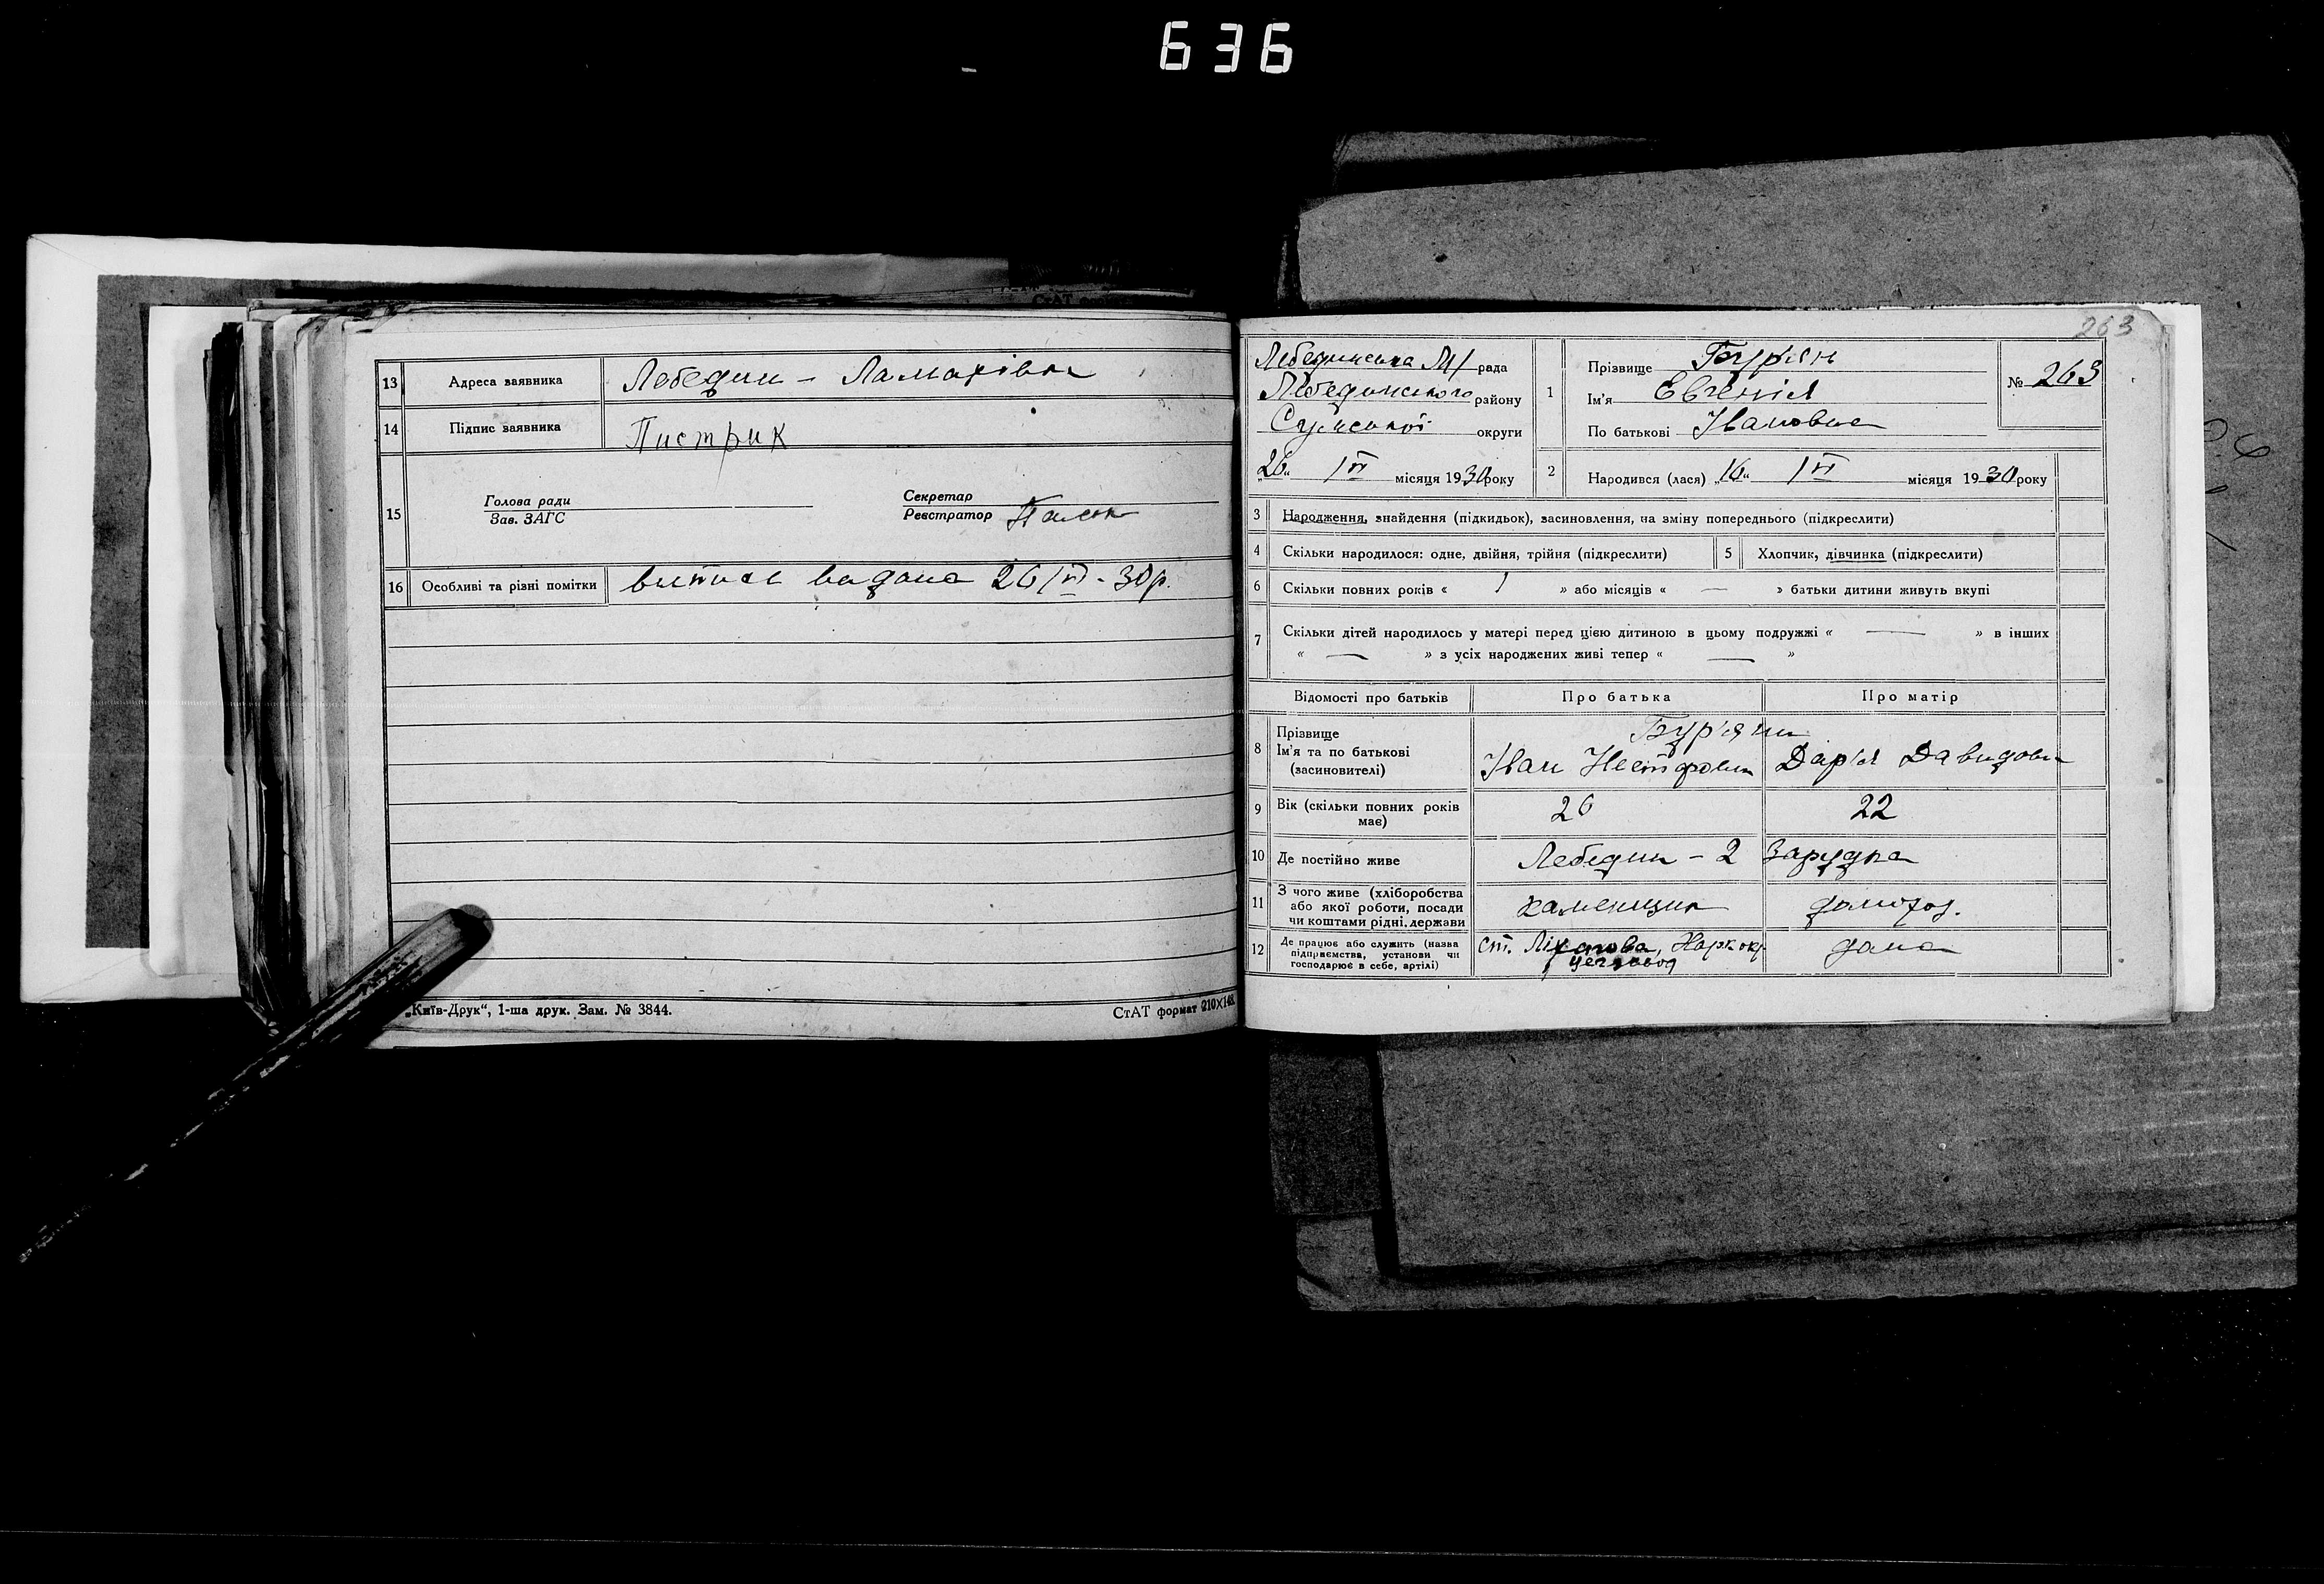 636
13 Адреса заявника Лебедин - Ламарівка
14 Підпис заявника Пистрик
15 Голова ради
Зав. ЗАГС
Секретар
Реєстратор
16 Особливі та різні помітки випись видана 26/VI - 30 р.
„Київ-Друк“, 1-ша друк. Зам. № 3844.
СтАТ формат 210X148
263
Лебединська М/ рада
Лебединського району
Сумської округи
„26“ VI місяця 1930 року
1 Прізвище Бур'ян
Ім'я Євгенія
По батькові Івановна
№ 263
2 Народився (лася) „16“ VI місяця 1930 року
3 Народження, знайдення (підкидьок), засиновлення, на зміну попереднього (підкреслити)
4 Скільки народилося: одне, двійня, трійня (підкреслити) 5 Хлопчик, дівчинка (підкреслити)
6 Скільки повних років « 1 » або місяців « — » батьки дитини живуть вкупі
7 Скільки дітей народилось у матері перед цією дитиною в цьому подружжі « — » в інших
« — » з усіх народжених живі тепер « — »
Відомості про батьків Про батька Про матір
8 Прізвище
Ім'я та по батькові
(засиновителі)
Бур'яни
Іван Несторович Дар'я Давидовн
9 Вік (скільки повних років
має)
26 22
10 Де постійно живе Лебедин - 2 Зарудка
11 З чого живе (хліборобства
або якої роботи, посади
чи коштами рідні, держави
каменщик домогосп.
12 Де працює або служить (назва
підприємства, установи чи
господарює в себе, артілі)
ст. Харк окр.
дома